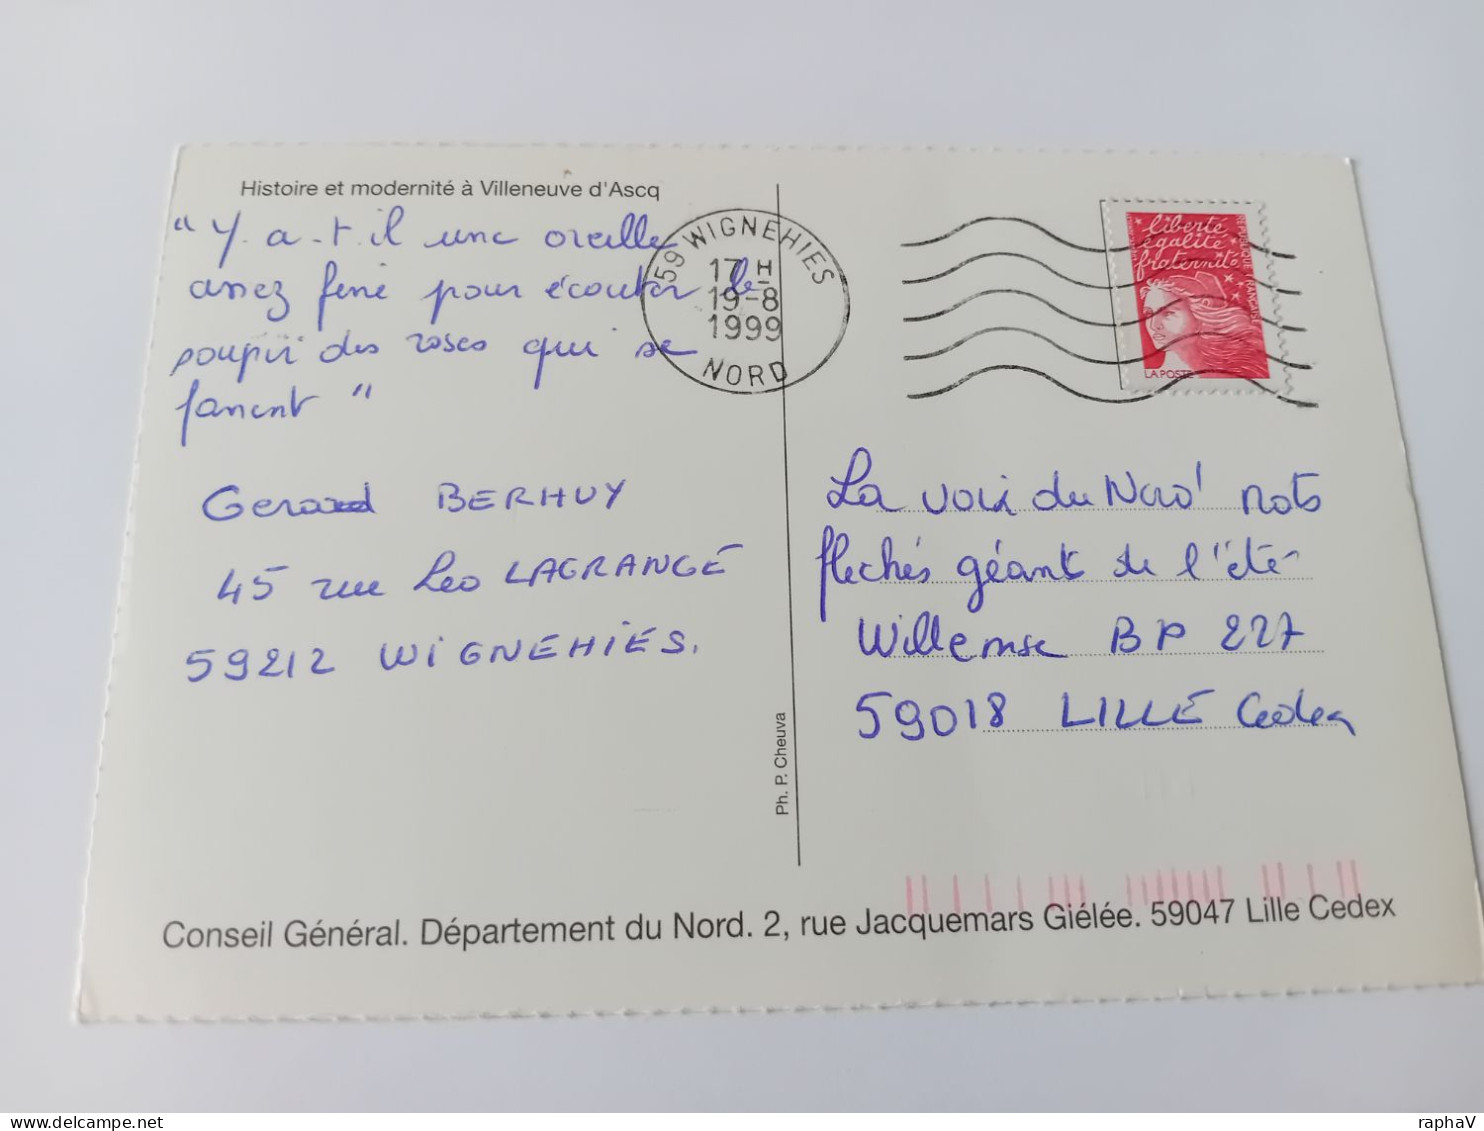 Histoire et modernité à Villeneuve d'Ascq
"Y. a-t-il une oreille
assez fine pour écouter le
soupir des roses qui se
fanent"
Gerard BERHUY
45 rue Leo LAGRANGE
59212 WIGNEHIES.
59 WIGNEHIES
17 H
19-8
1999
NORD
liberté
égalité
fraternité
RÉPUBLIQUE FRANÇAISE
LA POSTE
La voix du Nord mots
flechés géant de l'été
Willemse BP 227
59018 LILLE Cedex
Ph. P. Cheuva
Conseil Général. Département du Nord. 2, rue Jacquemars Giélée. 59047 Lille Cedex
delcampe.net
raphaV